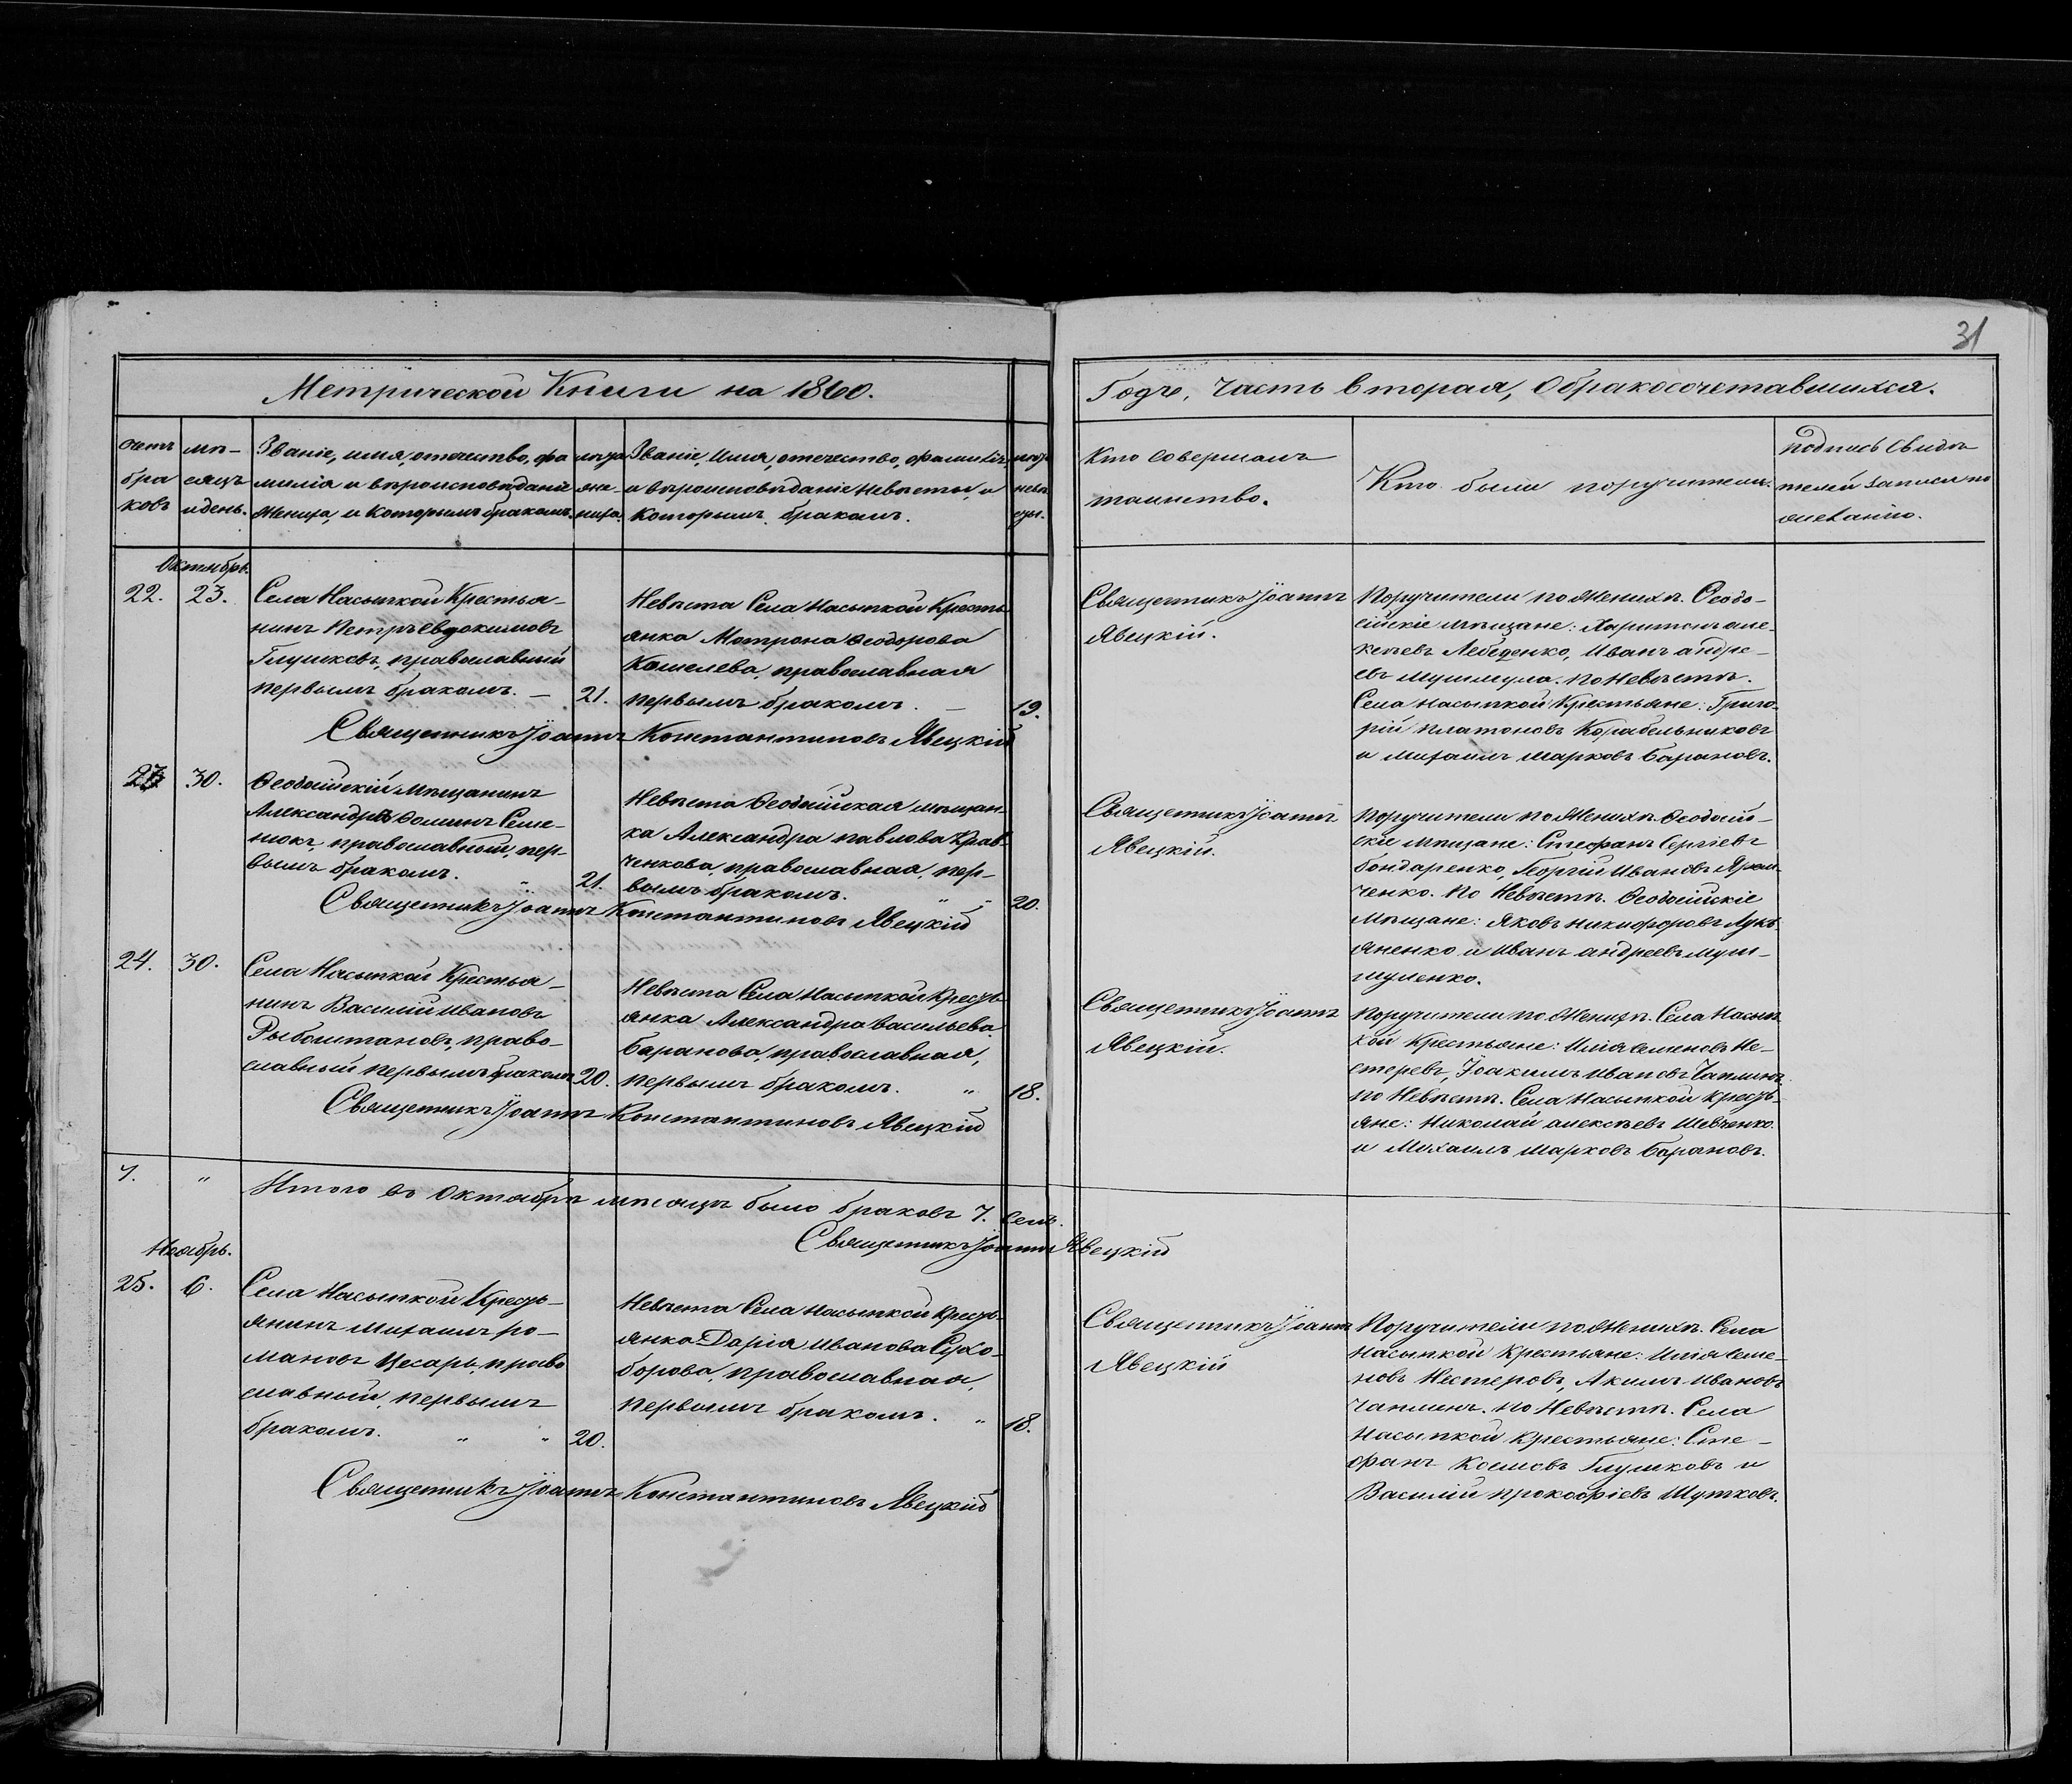 31
Метрической Книги на 1860.
Годъ, Часть вторая, О бракосочетавшихся.
Счетъ бра ковъ
мѣ- сяцъ и день.
Званіе, имя, отчество, фа
милія и вѣроисповѣданіе
Жениха, и Которымъ бракомъ.
лѣта же- ниха.
Званіе, Имя, отечество, фамилія
и вѣроисповѣданіе Невѣсты, и
Которымъ бракомъ.
невѣ сты.
Кто совершалъ
таинство.
Кто были поручители.
подпись свидѣ
телей записи по
желанію.
Октябрь.
22. 23.
Села Насыпкой Крестья-
нинъ Петръ Евдокимовъ
Глушковъ, православный
первымъ бракомъ. — 21.
Невѣста Села Насыпкой Кресть
янка Матрона Ѳеодорова
Кошелева, православная
первымъ бракомъ. — 19.
Священникъ Іоаннъ Константиновъ Явецкій
Священникъ Іоаннъ
Явецкій.
Поручители по Женихѣ. Ѳеодо-
сійскіе мѣщане: Харитонъ Але-
ксѣевъ Лебеденко, Иванъ Андре-
евъ Мушмула. По Невѣстѣ.
Села Насыпкой Крестьяне: Григо-
рій Платоновъ Корабельниковъ
и Михаилъ Марковъ Барановъ.
23 30.
Ѳеодосійскій Мѣщанинъ
Александръ Ѳоминъ Семе-
нюкъ, православный, пер-
вымъ бракомъ. " 21.
Невѣста Ѳеодосійская мѣщан-
ка Александра Павлова Крав-
ченкова, православная, пер-
вымъ бракомъ. " " 20.
Священникъ Іоаннъ Константиновъ Явецкій
Священникъ Іоаннъ
Явецкій.
Поручители по Женихѣ. Ѳеодосій-
скіе мѣщане: Стефанъ Сергіевъ
Бондаренко, Георгій Ивановъ
ченко. По Невѣстѣ. Ѳеодосійскіе
Мѣщане: Яковъ Никифоровъ Лукь
яненко и Иванъ Андреевъ Муш-
муленко.
24. 30.
Села Насыпкой Крестья-
нинъ Василій Ивановъ
Рыбоштановъ, право-
славный первымъ бракомъ 20.
Невѣста Села Насыпкой Кресть-
янка Александра Васильева
Баранова, православная,
первымъ бракомъ. " 18.
Священникъ Іоаннъ Константиновъ Явецкій
Священникъ Іоаннъ
Явецкій.
Поручители по Женихѣ. Села Насып
кой Крестьяне: Илія Семеновъ Не-
стеровъ, Іоакимъ Ивановъ Чаплинъ.
По Невѣстѣ. Села Насыпкой Кресть-
яне: Николай Алексѣевъ Шевченко
и Михаилъ Марковъ Барановъ.
7. "
Итого въ Октябрѣ мѣсяцѣ было браковъ 7. Семь.
Священникъ Іоаннъ Явецкій
Ноябрь.
25. 6.
Села Насыпкой Кресть-
янинъ Михаилъ Ро-
мановъ Цесарь, право
славный, первымъ
бракомъ. " " 20.
Невѣста Села Насыпкой Кресть-
янка Дарія Иванова Сухо-
борова, православная,
первымъ бракомъ. " 18.
Священникъ Іоаннъ Константиновъ Явецкій
Священникъ Іоаннъ
Явецкій
Поручители по Женихѣ. Села
Насыпкой Крестьяне: Илія Семе-
новъ Нестеровъ, Акимъ Ивановъ
Чаплинъ. По Невѣстѣ. Села
Насыпкой Крестьяне: Сте-
фанъ Космовъ Глушковъ и
Василій Прокофіевъ Шутковъ.